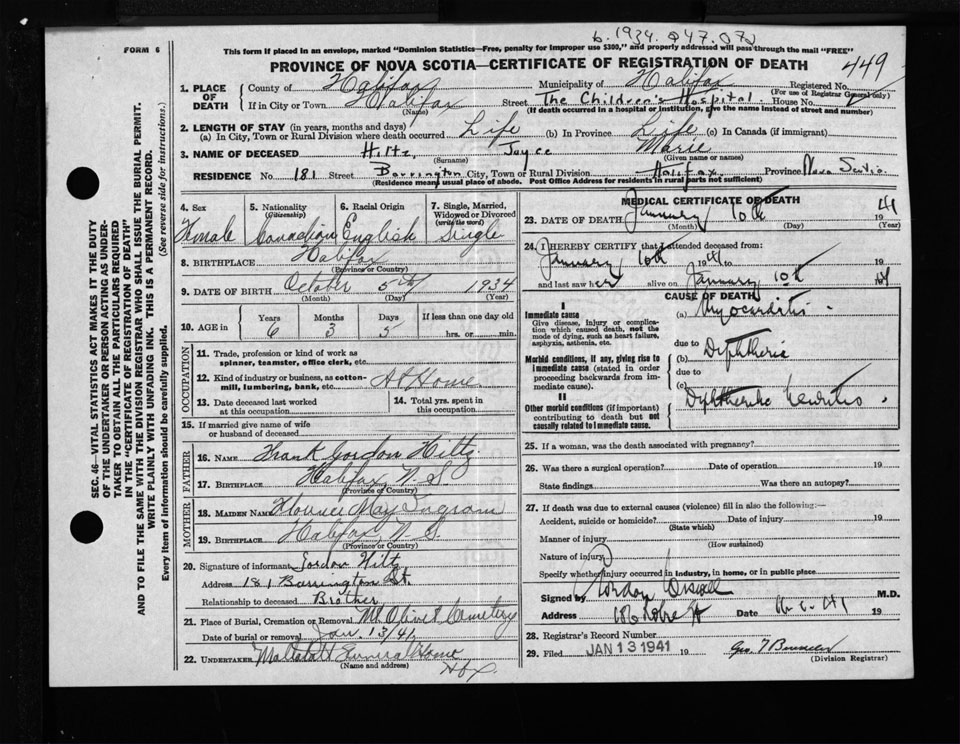 b. 1934. 947.072
FORM 6
This form if placed in an envelope, marked "Dominion Statistics—Free, penalty for improper use $300," and properly addressed will pass through the mail "FREE"
PROVINCE OF NOVA SCOTIA—CERTIFICATE OF REGISTRATION OF DEATH
449
SEC. 46—VITAL STATISTICS ACT MAKES IT THE DUTY
OF THE UNDERTAKER OR PERSON ACTING AS UNDER-
TAKER TO OBTAIN ALL THE PARTICULARS REQUIRED
IN THE "CERTIFICATE OF REGISTRATION OF DEATH"
AND TO FILE THE SAME WITH THE DIVISION REGISTRAR WHO SHALL ISSUE THE BURIAL PERMIT.
WRITE PLAINLY WITH UNFADING INK. THIS IS A PERMANENT RECORD.
Every item of information should be carefully supplied. (See reverse side for instructions.)
1. PLACE OF DEATH County of Halifax Municipality of Halifax Registered No.
(For use of Registrar General only)
If in City or Town Halifax Street The Children's Hospital. House No.
(Name) (If death occurred in a hospital or institution, give the name instead of street and number)
2. LENGTH OF STAY (in years, months and days)
(a) In City, Town or Rural Division where death occurred Life (b) In Province Life (c) In Canada (if immigrant)
3. NAME OF DECEASED Hiltz, Joyce Marie
(Surname) (Given name or names)
RESIDENCE No. 181 Street Barrington City, Town or Rural Division Halifax Province Nova Scotia.
(Residence means usual place of abode. Post Office Address for residents in rural parts not sufficient)
4. Sex 5. Nationality (Citizenship) 6. Racial Origin 7. Single, Married, Widowed or Divorced (write the word)
Female Canadian English Single
8. BIRTHPLACE Halifax
(Province or Country)
9. DATE OF BIRTH October 5th 1934
(Month) (Day) (Year)
10. AGE in Years Months Days If less than one day old
6 3 5 hrs. or min.
OCCUPATION
11. Trade, profession or kind of work as spinner, teamster, office clerk, etc.
12. Kind of industry or business, as cotton-mill, lumbering, bank, etc. At Home
13. Date deceased last worked at this occupation
14. Total yrs. spent in this occupation
15. If married give name of wife or husband of deceased
FATHER
16. NAME Frank Gordon Hiltz
17. BIRTHPLACE Halifax, N.S
(Province or Country)
MOTHER
18. MAIDEN NAME Florence May Ingram
19. BIRTHPLACE Halifax, N.S.
(Province or Country)
20. Signature of informant Gordon Hiltz
Address 181 Barrington St.
Relationship to deceased Brother
21. Place of Burial, Cremation or Removal Mt. Olivet Cemetery
Date of burial or removal Jan. 13/41
22. UNDERTAKER Funeral Home
(Name and address)
Hfx.
MEDICAL CERTIFICATE OF DEATH
23. DATE OF DEATH January 10th 1941
(Month) (Day) (Year)
24. I HEREBY CERTIFY that I attended deceased from:
January 10th 1941 January 10th 1941
and last saw her alive on
CAUSE OF DEATH
I
Immediate cause
Give disease, injury or complication which caused death, not the mode of dying, such as heart failure, asphyxia, asthenia, etc.
(a) Myocarditis.
due to
Morbid conditions, if any, giving rise to immediate cause (stated in order proceeding backwards from immediate cause).
(b) Diphtheria
due to
(c)
II
Other morbid conditions (if important) contributing to death but not causally related to immediate cause.
Diphtheritic Neuritis.
25. If a woman, was the death associated with pregnancy?
26. Was there a surgical operation? Date of operation 19
State findings Was there an autopsy?
27. If death was due to external causes (violence) fill in also the following:—
Accident, suicide or homicide? Date of injury 19
(State which)
Manner of injury
(How sustained)
Nature of injury
Specify whether injury occurred in industry, in home, or in public place
Signed by Gordon M.D.
Address Date 19
28. Registrar's Record Number
29. Filed JAN 13 1941 19 Geo. F
(Division Registrar)